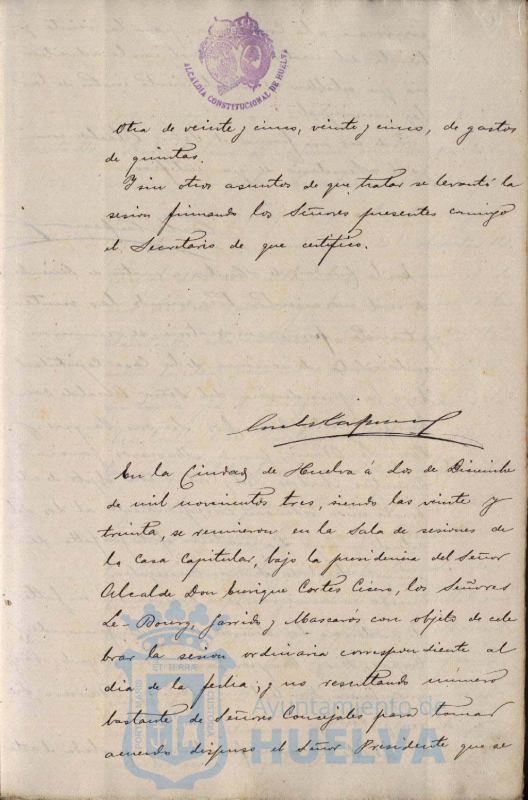 ALCALDIA CONSTITUCIONAL DE HUELVA
Otra de veinte y cinco, veinte y cinco, de gastos
de quintas.
Y sin otros asuntos de que tratar se levantó la
sesion firmando los Señores presentes conmigo
el Secretario de que certifico.
En la Ciudad de Huelva á dos de Diciembre
de mil novecientos tres, siendo las veinte y
treinta, se reunieron en la Sala de sesiones de
la casa Capitular, bajo la presidencia del Señor
Alcalde Don Enrique Cortes Cisero, los Señores
Le-Bourg, Garrido y Mascarós con objeto de cele
brar la sesion ordinaria correspondiente al
dia de la fecha; y no resultando número
bastante de Señores Concejales para tomar
acuerdo dispuso el Señor Presidente que se
ET TERRA
Ayuntamiento de
HUELVA